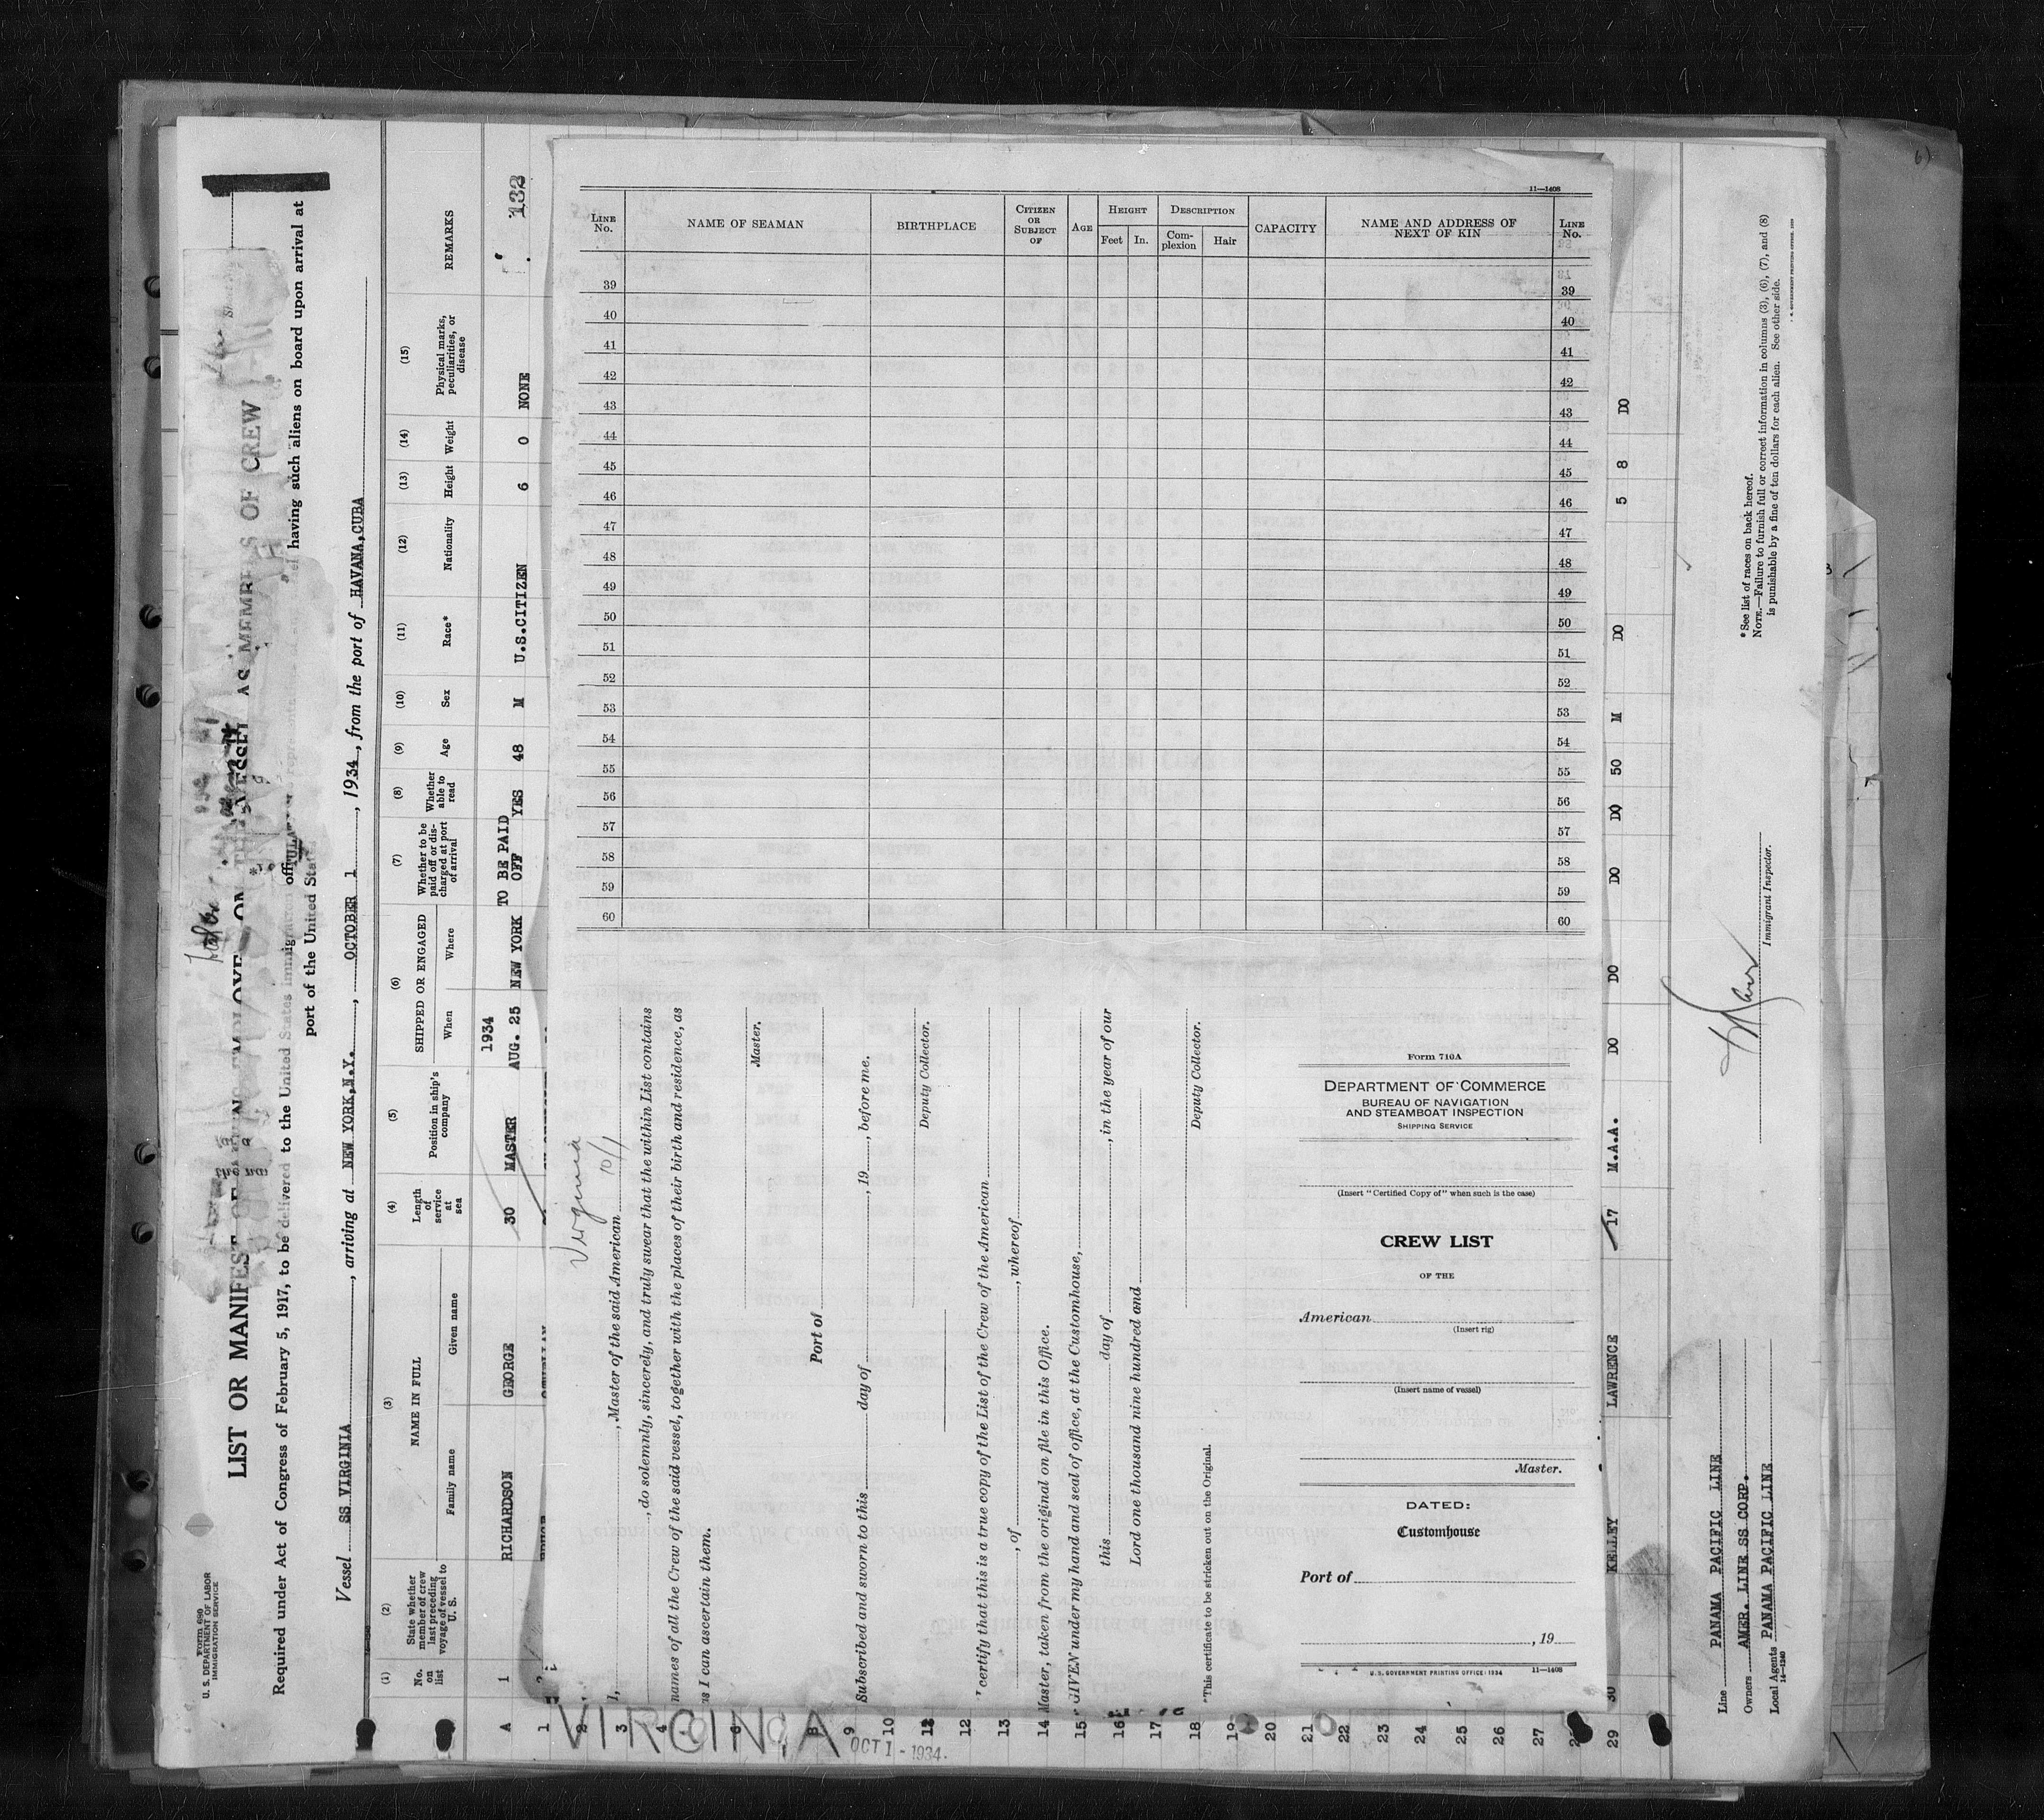 Form 680
U. S. DEPARTMENT OF LABOR
IMMIGRATION SERVICE
LIST OR MANIFEST OF
AS MEMBERS OF CREW
Required under Act of Congress of February 5, 1917, to be delivered to the United States immigration
having such aliens on board upon arrival at
port of the United States
Vessel SS VIRGINIA, arriving at NEW YORK,N.Y., OCTOBER 1, 1934, from the port of HAVANA,CUBA
(1) No. on list
(2) State whether member of crew last preceding voyage of vessel to U. S.
(3) NAME IN FULL
Family name
Given name
(4) Length of service at sea
(5) Position in ship's company
(6) SHIPPED OR ENGAGED
When
Where
(7) Whether to be paid off or discharged at port of arrival
(8) Whether able to read
(9) Age
(10) Sex
(11) Race*
(12) Nationality
(13) Height
(14) Weight
(15) Physical marks, peculiarities, or disease
REMARKS
132
1934
TO BE PAID
A 1 RICHARDSON GEORGE 30 MASTER AUG. 25 NEW YORK OFF YES 48 M U.S.CITIZEN 6 0 NONE
11—1408
LINE No.
NAME OF SEAMAN
BIRTHPLACE
CITIZEN OR SUBJECT OF
AGE
HEIGHT
Feet
In.
DESCRIPTION
Complexion
Hair
CAPACITY
NAME AND ADDRESS OF NEXT OF KIN
LINE No.
39 39
40 40
41 41
42 42
43 43
44 44
45 45
46 46
47 47
48 48
49 49
50 50
51 51
52 52
53 53
54 54
55 55
56 56
57 57
58 58
59 59
60 60
Virginia 10/1
I, , Master of the said American
, do solemnly, sincerely, and truly swear that the within List contains
names of all the Crew of the said vessel, together with the places of their birth and residence, as
as I can ascertain them.
Master.
Port of
Subscribed and sworn to this day of , 19 , before me.
Deputy Collector.
certify that this is a true copy of the List of the Crew of the American
, of , whereof
Master, taken from the original on file in this Office.
GIVEN under my hand and seal of office, at the Customhouse,
this day of , in the year of our
Lord one thousand nine hundred and
Deputy Collector.
*This certificate to be stricken out on the Original.
Form 710A
DEPARTMENT OF COMMERCE
BUREAU OF NAVIGATION
AND STEAMBOAT INSPECTION
SHIPPING SERVICE
(Insert "Certified Copy of" when such is the case)
CREW LIST
OF THE
American
(Insert rig)
(Insert name of vessel)
Master.
DATED:
Customhouse
Port of
, 19
U. S. GOVERNMENT PRINTING OFFICE: 1934 11—1408
1 2 3 4 6 8 9 10 12 13 14 15 16 17 18 19 20 21 22 23 24 25 26 27 29
VIRGINIA
OCT 1 - 1934.
30 KELLEY LAWRENCE 17 M.A.A. DO DO DO DO 50 M DO 5 8 DO
Line PANAMA PACIFIC LINE
Owners AMER. LINE SS CORP.
Local Agents PANAMA PACIFIC LINE
14—1240
Immigrant Inspector.
* See list of races on back hereof.
NOTE.—Failure to furnish full or correct information in columns (3), (6), (7), and (8)
is punishable by a fine of ten dollars for each alien. See other side.